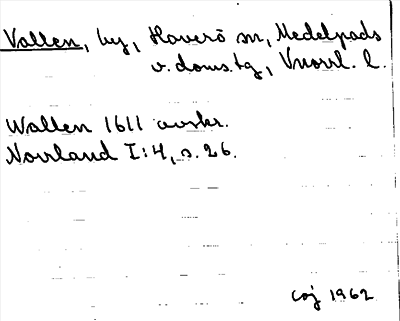 Vallen, by, Haverö sn, Medelpads
v. doms.tg, Vnorrl. l.
Wallen 1611 avskr.
Norrland I:4, s. 26.
CGJ 1962